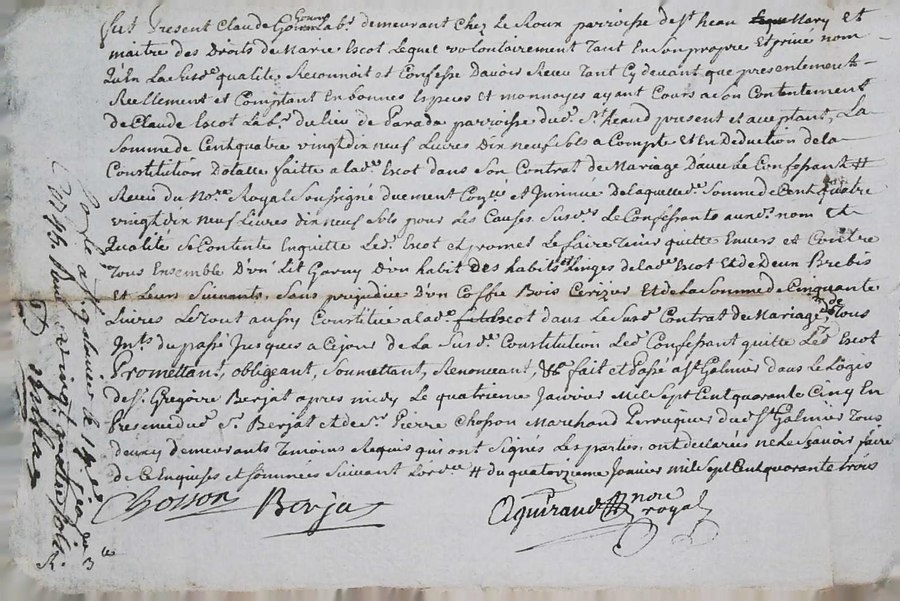 fut Present Claude Gonon labr. demeurant Chez le Roux parroisse de St. heau Mary Et
maitre des Droits de Marie Escot Lequel volontairement Tant En Son propre Et privé nom
qu'En La Susde. qualité, Reconnoit et Confesse D'avoir Receu Tant Cy devant que presentement
Reellement et Comptant En bonnes Especes Et monnoyes ayant Cours a Son Contentement
de Claude Escot Labr. du lieu de Parada parroisse dud. St. heaud present et acceptant, La
Somme de Cent quatre vingt dix neuf Livres dix neuf sols a Compte et En Deduction de la
Constitution Dotalle faitte a lade. Escot dans Son Contrat de Mariage D'avec le Confessant #
Receu du Nore. Royal Soussigné duement Conlle. et Insinué De laquelle d. Somme de Cent quatre
vingt dix neuf Livres dix neuf sols pour les Causes Susd. Le Confessant aux d. nom et
qualité Se Contente En quitte Led. Escot et promet Le faire Tenir quitte Envers et Contre
Tous Ensemble D'un Lit Garny D'un habit Des habits et Linges de lade. Escot Et de deux Brebis
Et Leurs Suivants, Sans prejudice D'un Coffre Bois Cerizier Et de La Somme de Cinquante
Livres Le Tout aussy Constitué a lade. Escot dans Le Susd. Contrat de Mariage, de Tous
Intts. du passé Jusques a Ce jour de La Susde. Constitution Led. Confessant quitte Led. Escot
Promettant, obligeant, Soumettant, Renonceant, &c. fait et Passé a St. Galmier dans Le Logis
de Sr. Gregoire Berjat apres midy Le quatrieme Janvier Mil Sept Cent quarante Cinq En
Presence dud. Sr. Berjat et de Sr. Pierre Chosson Marchand Perruquier dud. St. Galmier Tous
deux y demeurants Temoins Requis qui ont Signés Les parties, ont declarées ne Le Savoir faire
De Ce Enquises et Sommées Suivant Lordce. # du quatorzieme Janvier mil Sept Cent quarante trois
Chosson Berjat Aguiraud nore royal
Controllé a St. galmier le 14e
1745 Receu vingt quatre sols